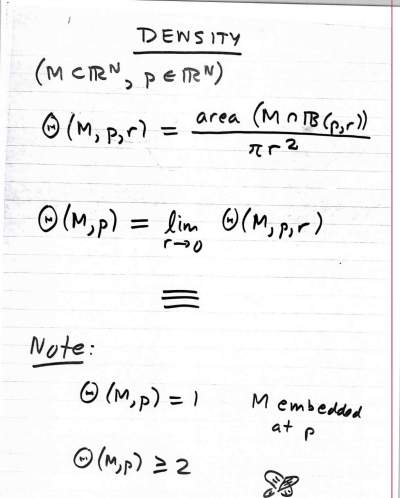 DENSITY
(M ⊂ ℝᴺ, p ∈ ℝᴺ)
Θ(M,p,r) = area (M ∩ 𝔹(p,r)) / πr²
Θ(M,p) = lim r→0 Θ(M,p,r)
Note:
Θ(M,p) = 1 M embedded at p
Θ(M,p) ≥ 2